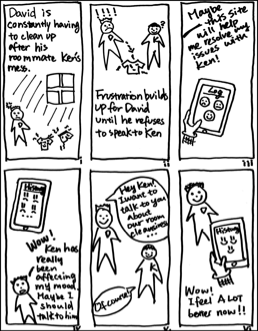 David is
constantly having
to clean up
after his
roommate Ken's
mess.
i
!!!!
Frustration builds
up for David
until he refuses
to speak to Ken
ii
Maybe
this site
will help
me resolve my
issues with
Ken!
Log
iii
History
Wow!
Ken has
really
been
affecting
my mood.
Maybe I
should
talk to him
iv
Hey Ken!
I want to
talk to you
about
our room
cleaniness
...
Of course
v
History
Wow!
I feel A LOT
better now!!
vi